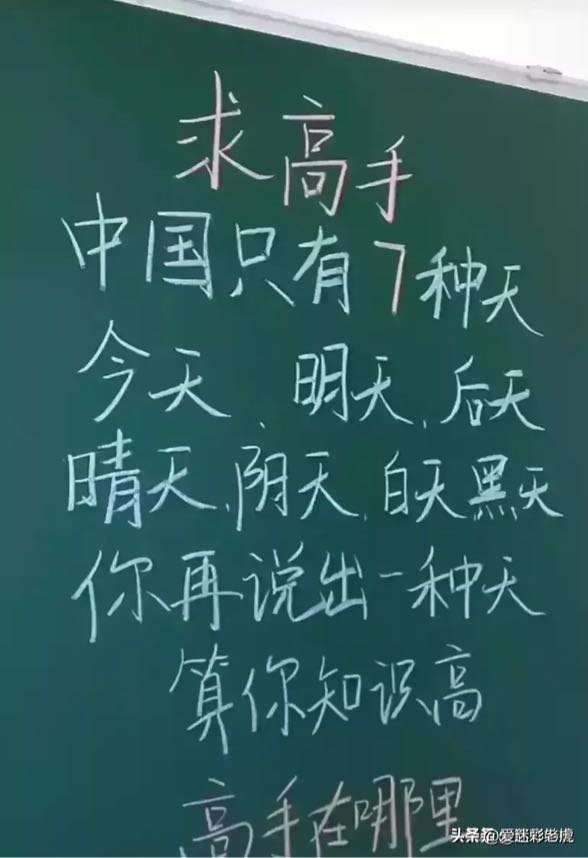 求高手
中国只有7种天
今天、明天、后天
晴天、阴天、白天黑天
你再说出一种天
算你知识高
高手在哪里
头条@爱迷彩老虎